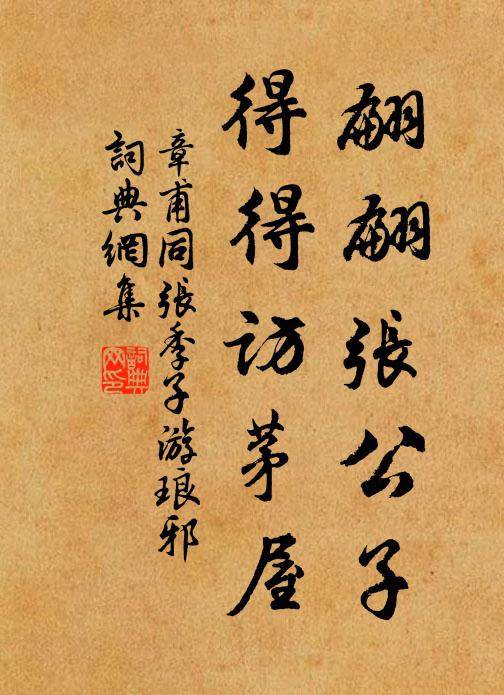 翩翩張公子
得得訪茅屋
章甫同張季子游琅邪
詞典網集
詞典網印